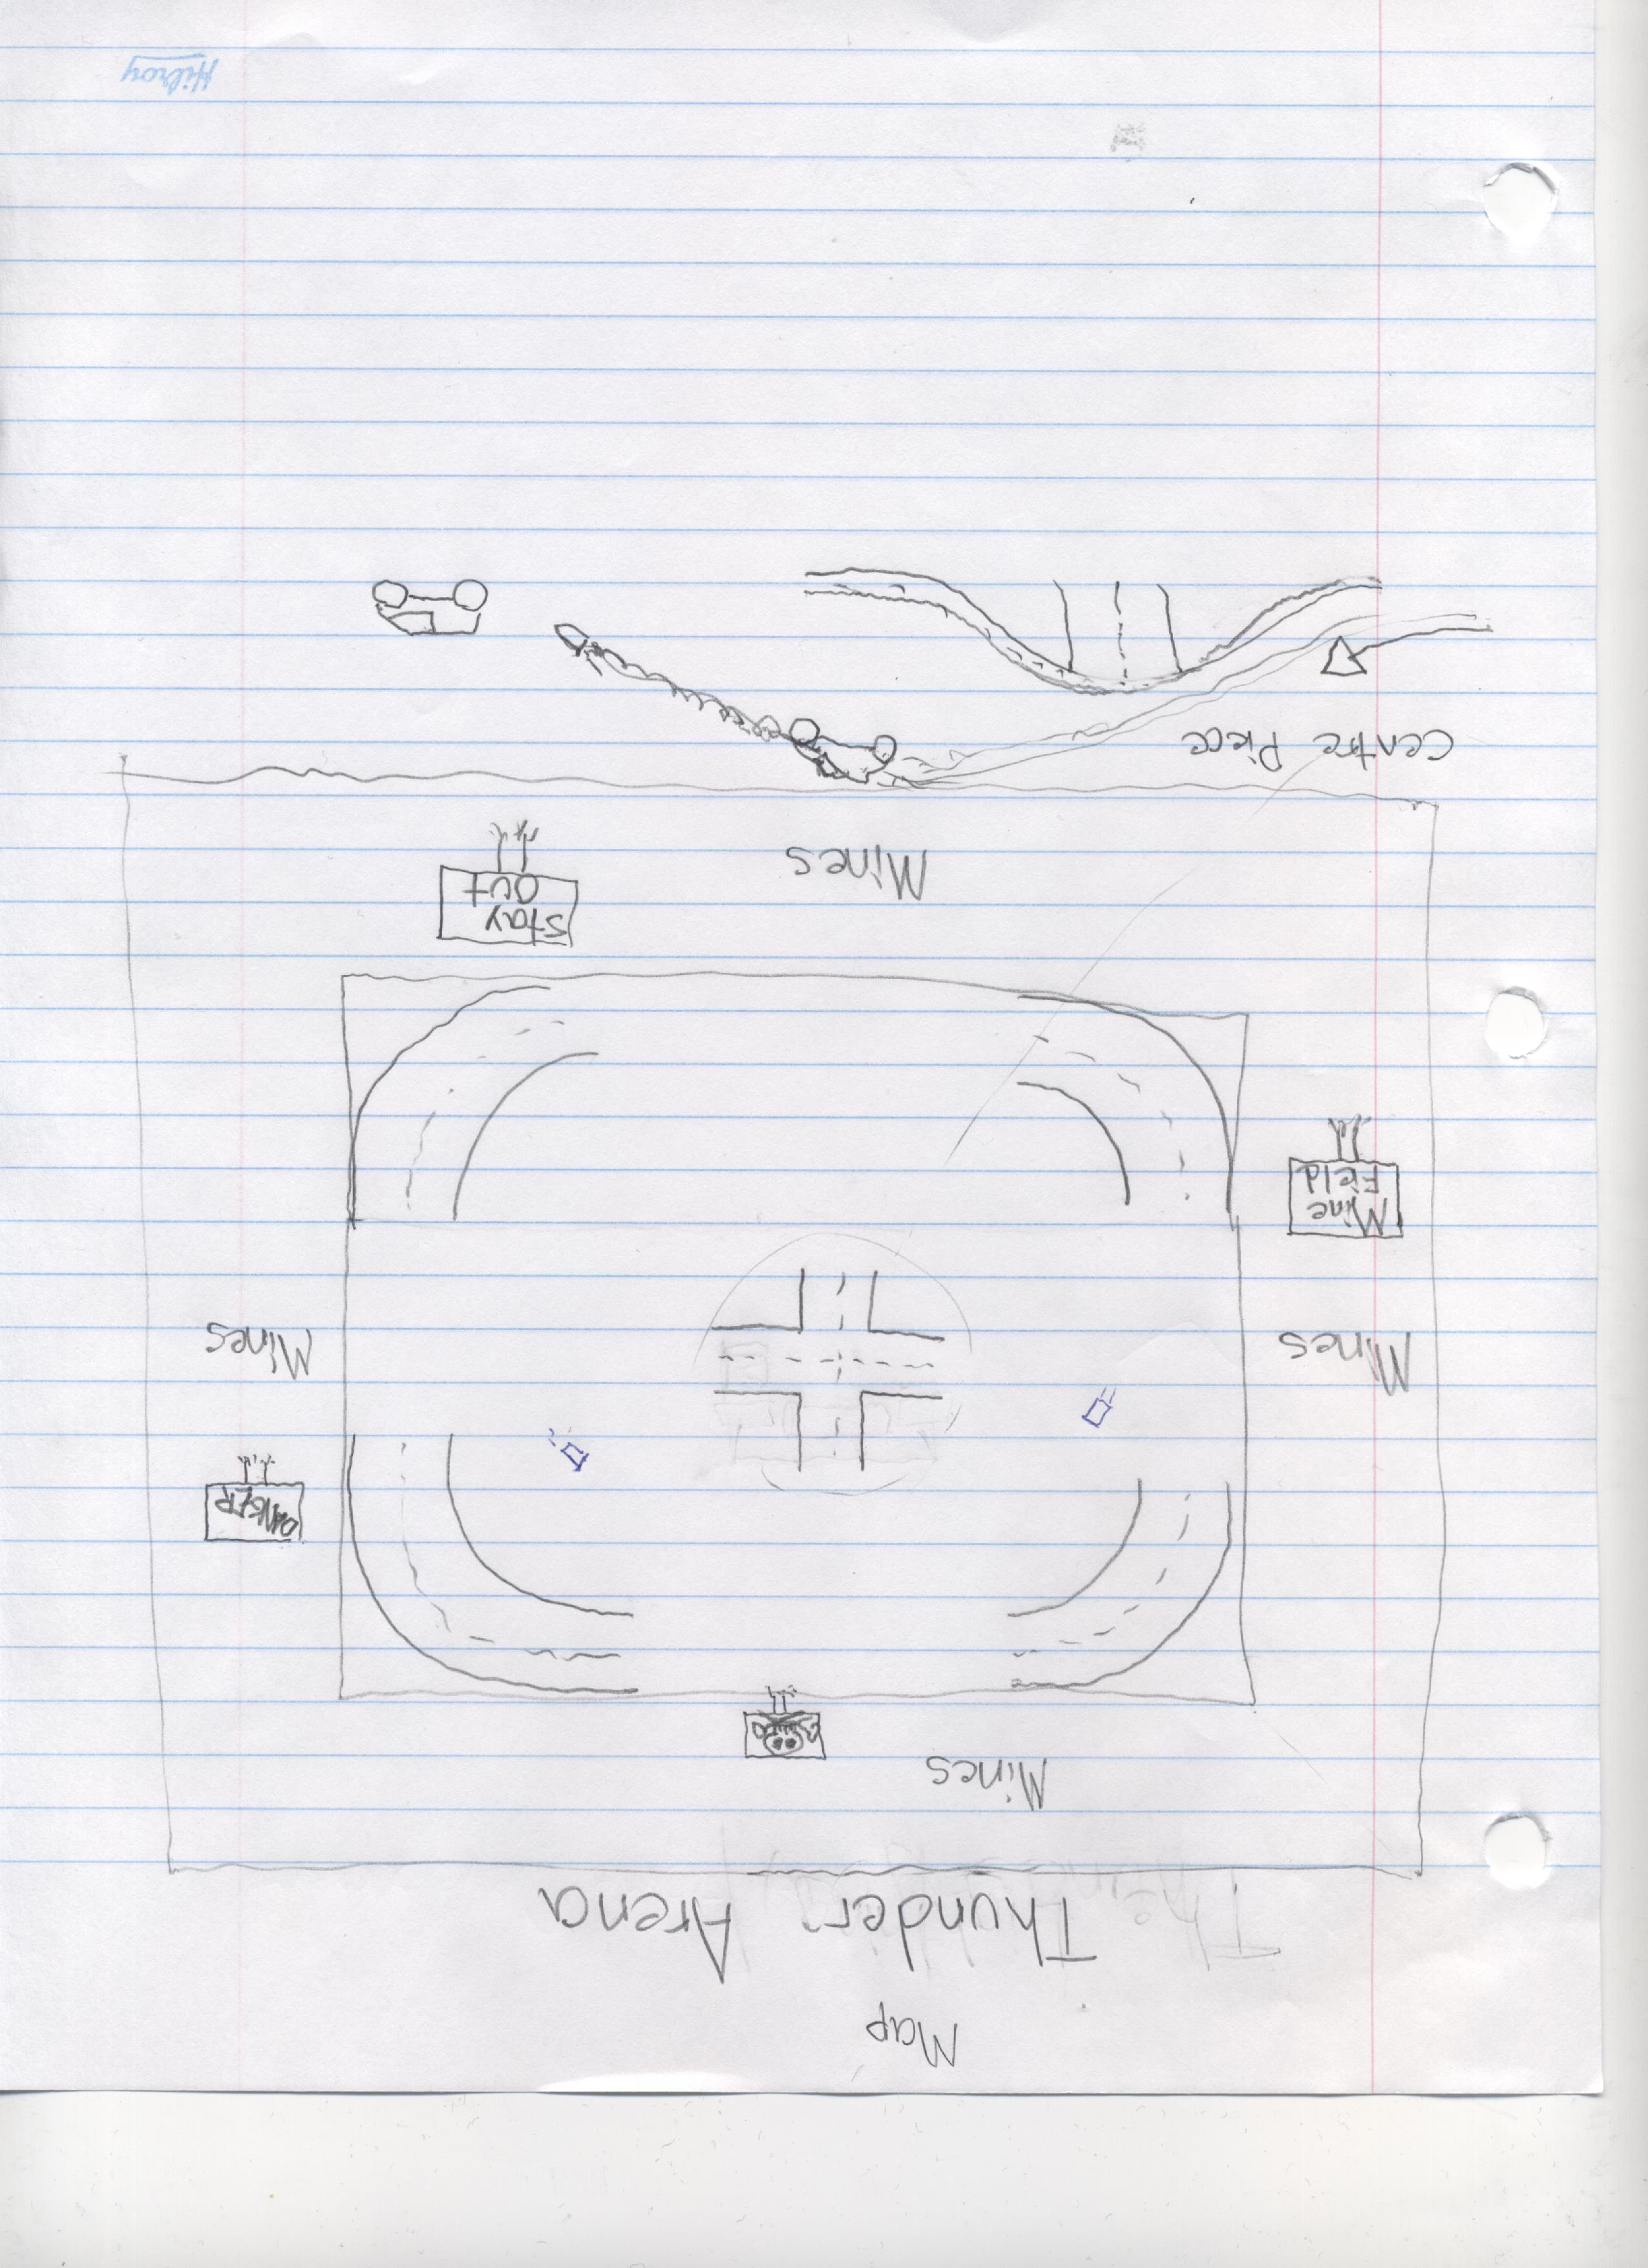 Map
Thunder Arena
Mines
DANGER
Mines
Mines
Mine
Field
Stay
Out
Mines
Centre Piece
Hilroy